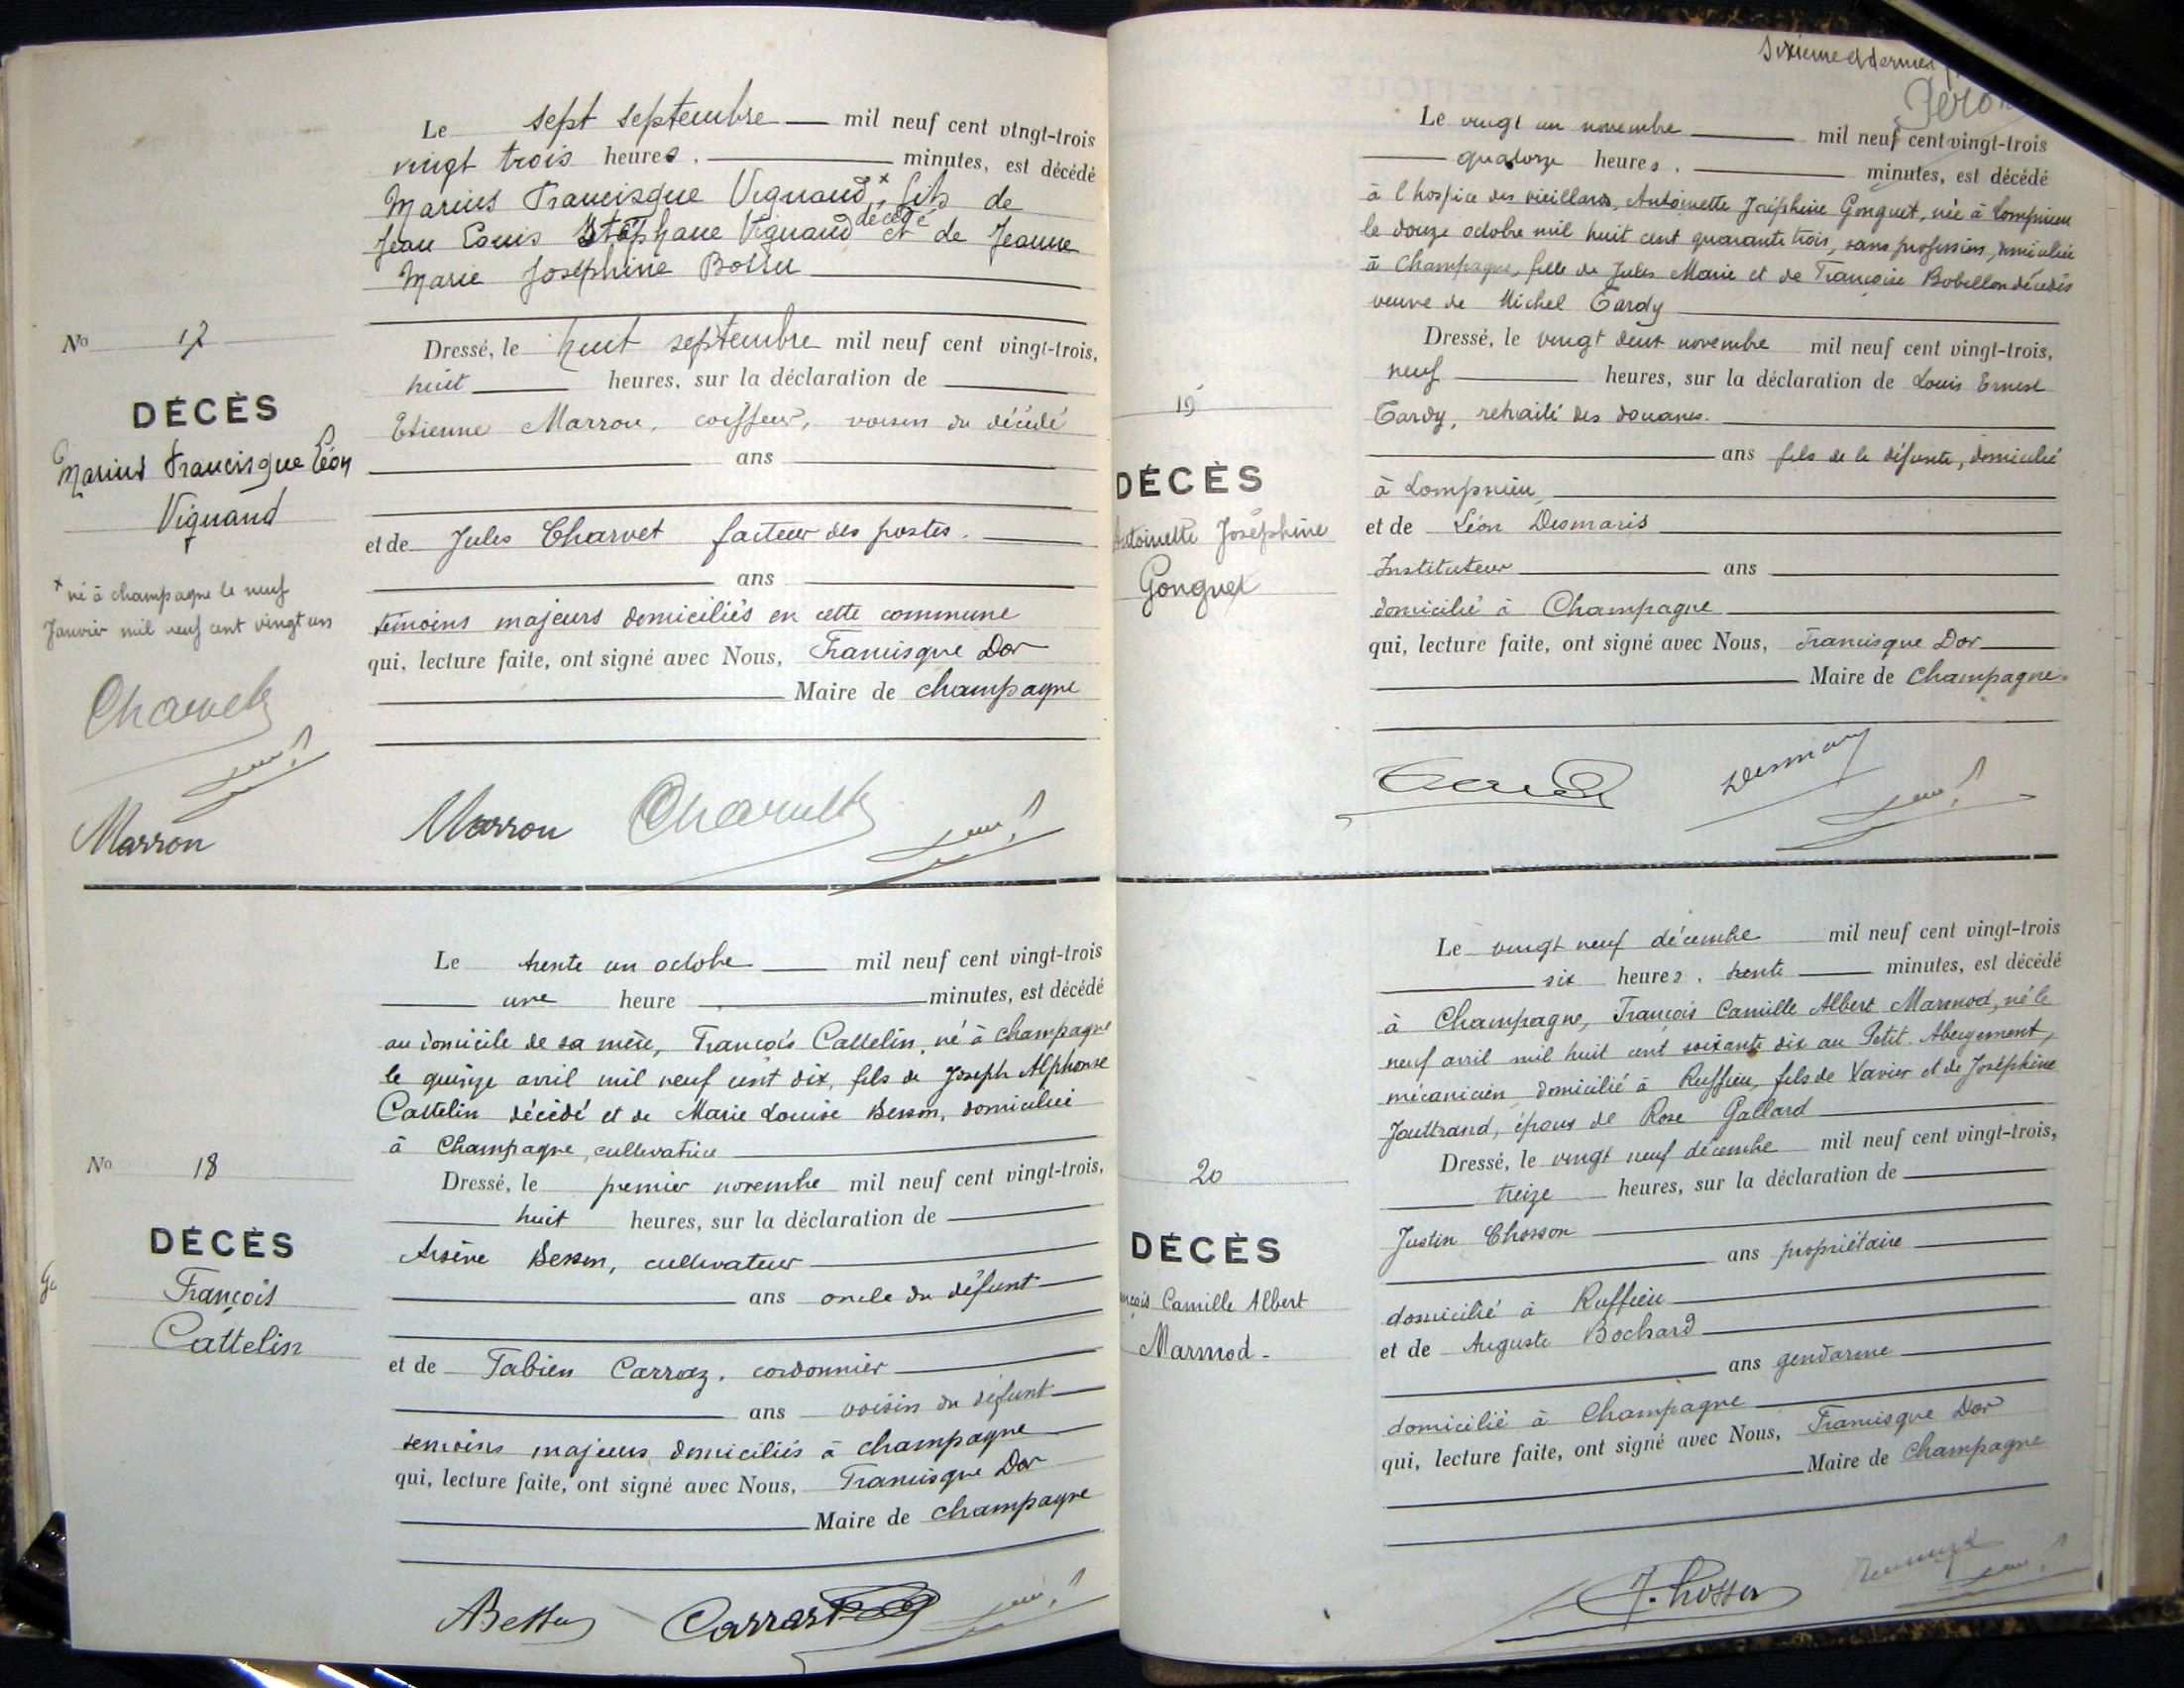 Le sept septembre mil neuf cent vingt-trois
vingt trois heures. minutes, est décédé
Marius Francisque Vignand x, fils de
Jean Louis Stéphane Vignand décédé et de Jeanne
Marie Joséphine Bossu
No 17
DÉCÈS
Marius Francisque Léon
Vignand
x né à champagne le neuf
Janvier mil neuf cent vingt un
Charvet
Marron
Dressé, le huit septembre mil neuf cent vingt-trois,
huit heures, sur la déclaration de
Etienne Marron, coiffeur, voisin du décédé
ans
et de Jules Charvet facteur des postes.
ans
témoins majeurs domiciliés en cette commune
qui, lecture faite, ont signé avec Nous, Francisque Dor
Maire de champagne
Marron Charvet
Le trente un octobre mil neuf cent vingt-trois
une heure minutes, est décédé
au domicile de sa mère, François Cattelin, né à champagne
le quinze avril mil neuf cent dix, fils de Joseph Alphonse
Cattelin décédé et de Marie Louise Besson, domiciliée
à Champagne, cultivatrice
No 18
DÉCÈS
François
Cattelin
Dressé, le premier novembre mil neuf cent vingt-trois,
huit heures, sur la déclaration de
Arsène Besson, cultivateur
ans oncle du défunt
et de Fabien Carraz, cordonnier
ans voisin du défunt
temoins majeurs domiciliés à champagne
qui, lecture faite, ont signé avec Nous, Francisque Dor
Maire de champagne
ABesson Carraz
Sixième et dernier
Le vingt un novembre mil neuf cent vingt-trois
quatorze heures. minutes, est décédé
à l'hospice des vieillards, Antoinette Joséphine Gonguet, née à Lompnieu
le douze octobre mil huit cent quarante trois, sans profession, domiciliée
à Champagne, fille de Jules Marie et de Françoise Bobillon décédés
veuve de Michel Tardy
19
DÉCÈS
Antoinette Joséphine
Gonguet
Dressé, le vingt deux novembre mil neuf cent vingt-trois,
neuf heures, sur la déclaration de Louis Ernest
Tardy, retraité des douanes.
ans fils de la défunte, domicilié
à Lompnieu,
et de Léon Desmaris
Instituteur ans
domicilié à Champagne
qui, lecture faite, ont signé avec Nous, Francisque Dor
Maire de Champagne.
Le vingt neuf décembre mil neuf cent vingt-trois
six heures. trente minutes, est décédé
à Champagne, François Camille Albert Marmod, né le
neuf avril mil huit cent soixante dix au Petit Abergement,
mécanicien domicilié à Ruffieu, fils de Xavier et de Joséphine
Jouttrand, époux de Rose Gallard
20
DÉCÈS
nçois Camille Albert
Marmod -
Dressé, le vingt neuf décembre mil neuf cent vingt-trois,
treize heures, sur la déclaration de
Justin Chosson
ans propriétaire
domicilié à Ruffieu
et de Auguste Bochard
ans gendarme
domicilié à Champagne
qui, lecture faite, ont signé avec Nous, Francisque Dor
Maire de Champagne
J. Chosson